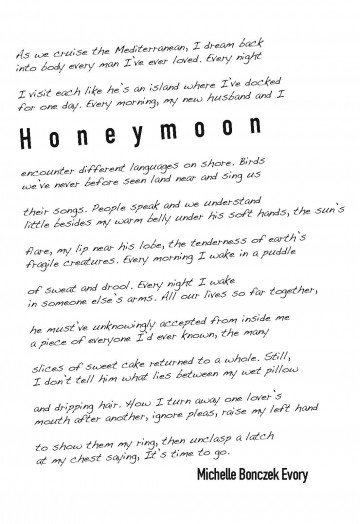 As we cruise the Mediterranean, I dream back
into body every man I've ever loved. Every night
I visit each like he's an island where I've docked
for one day. Every morning, my new husband and I
Honeymoon
encounter different languages on shore. Birds
we've never before seen land near and sing us
their songs. People speak and we understand
little besides my warm belly under his soft hands, the sun's
flare, my lip near his lobe, the tenderness of earth's
fragile creatures. Every morning I wake in a puddle
of sweat and drool. Every night I wake
in someone else's arms. All our lives so far together,
he must've unknowingly accepted from inside me
a piece of everyone I'd ever known, the many
slices of sweet cake returned to a whole. Still,
I don't tell him what lies between my wet pillow
and dripping hair. How I turn away one lover's
mouth after another, ignore pleas, raise my left hand
to show them my ring, then unclasp a latch
at my chest saying, It's time to go.
Michelle Bonczek Evory